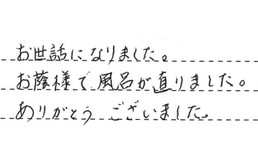 お世話になりました。
お蔭様で風呂が直りました。
ありがとうございました。